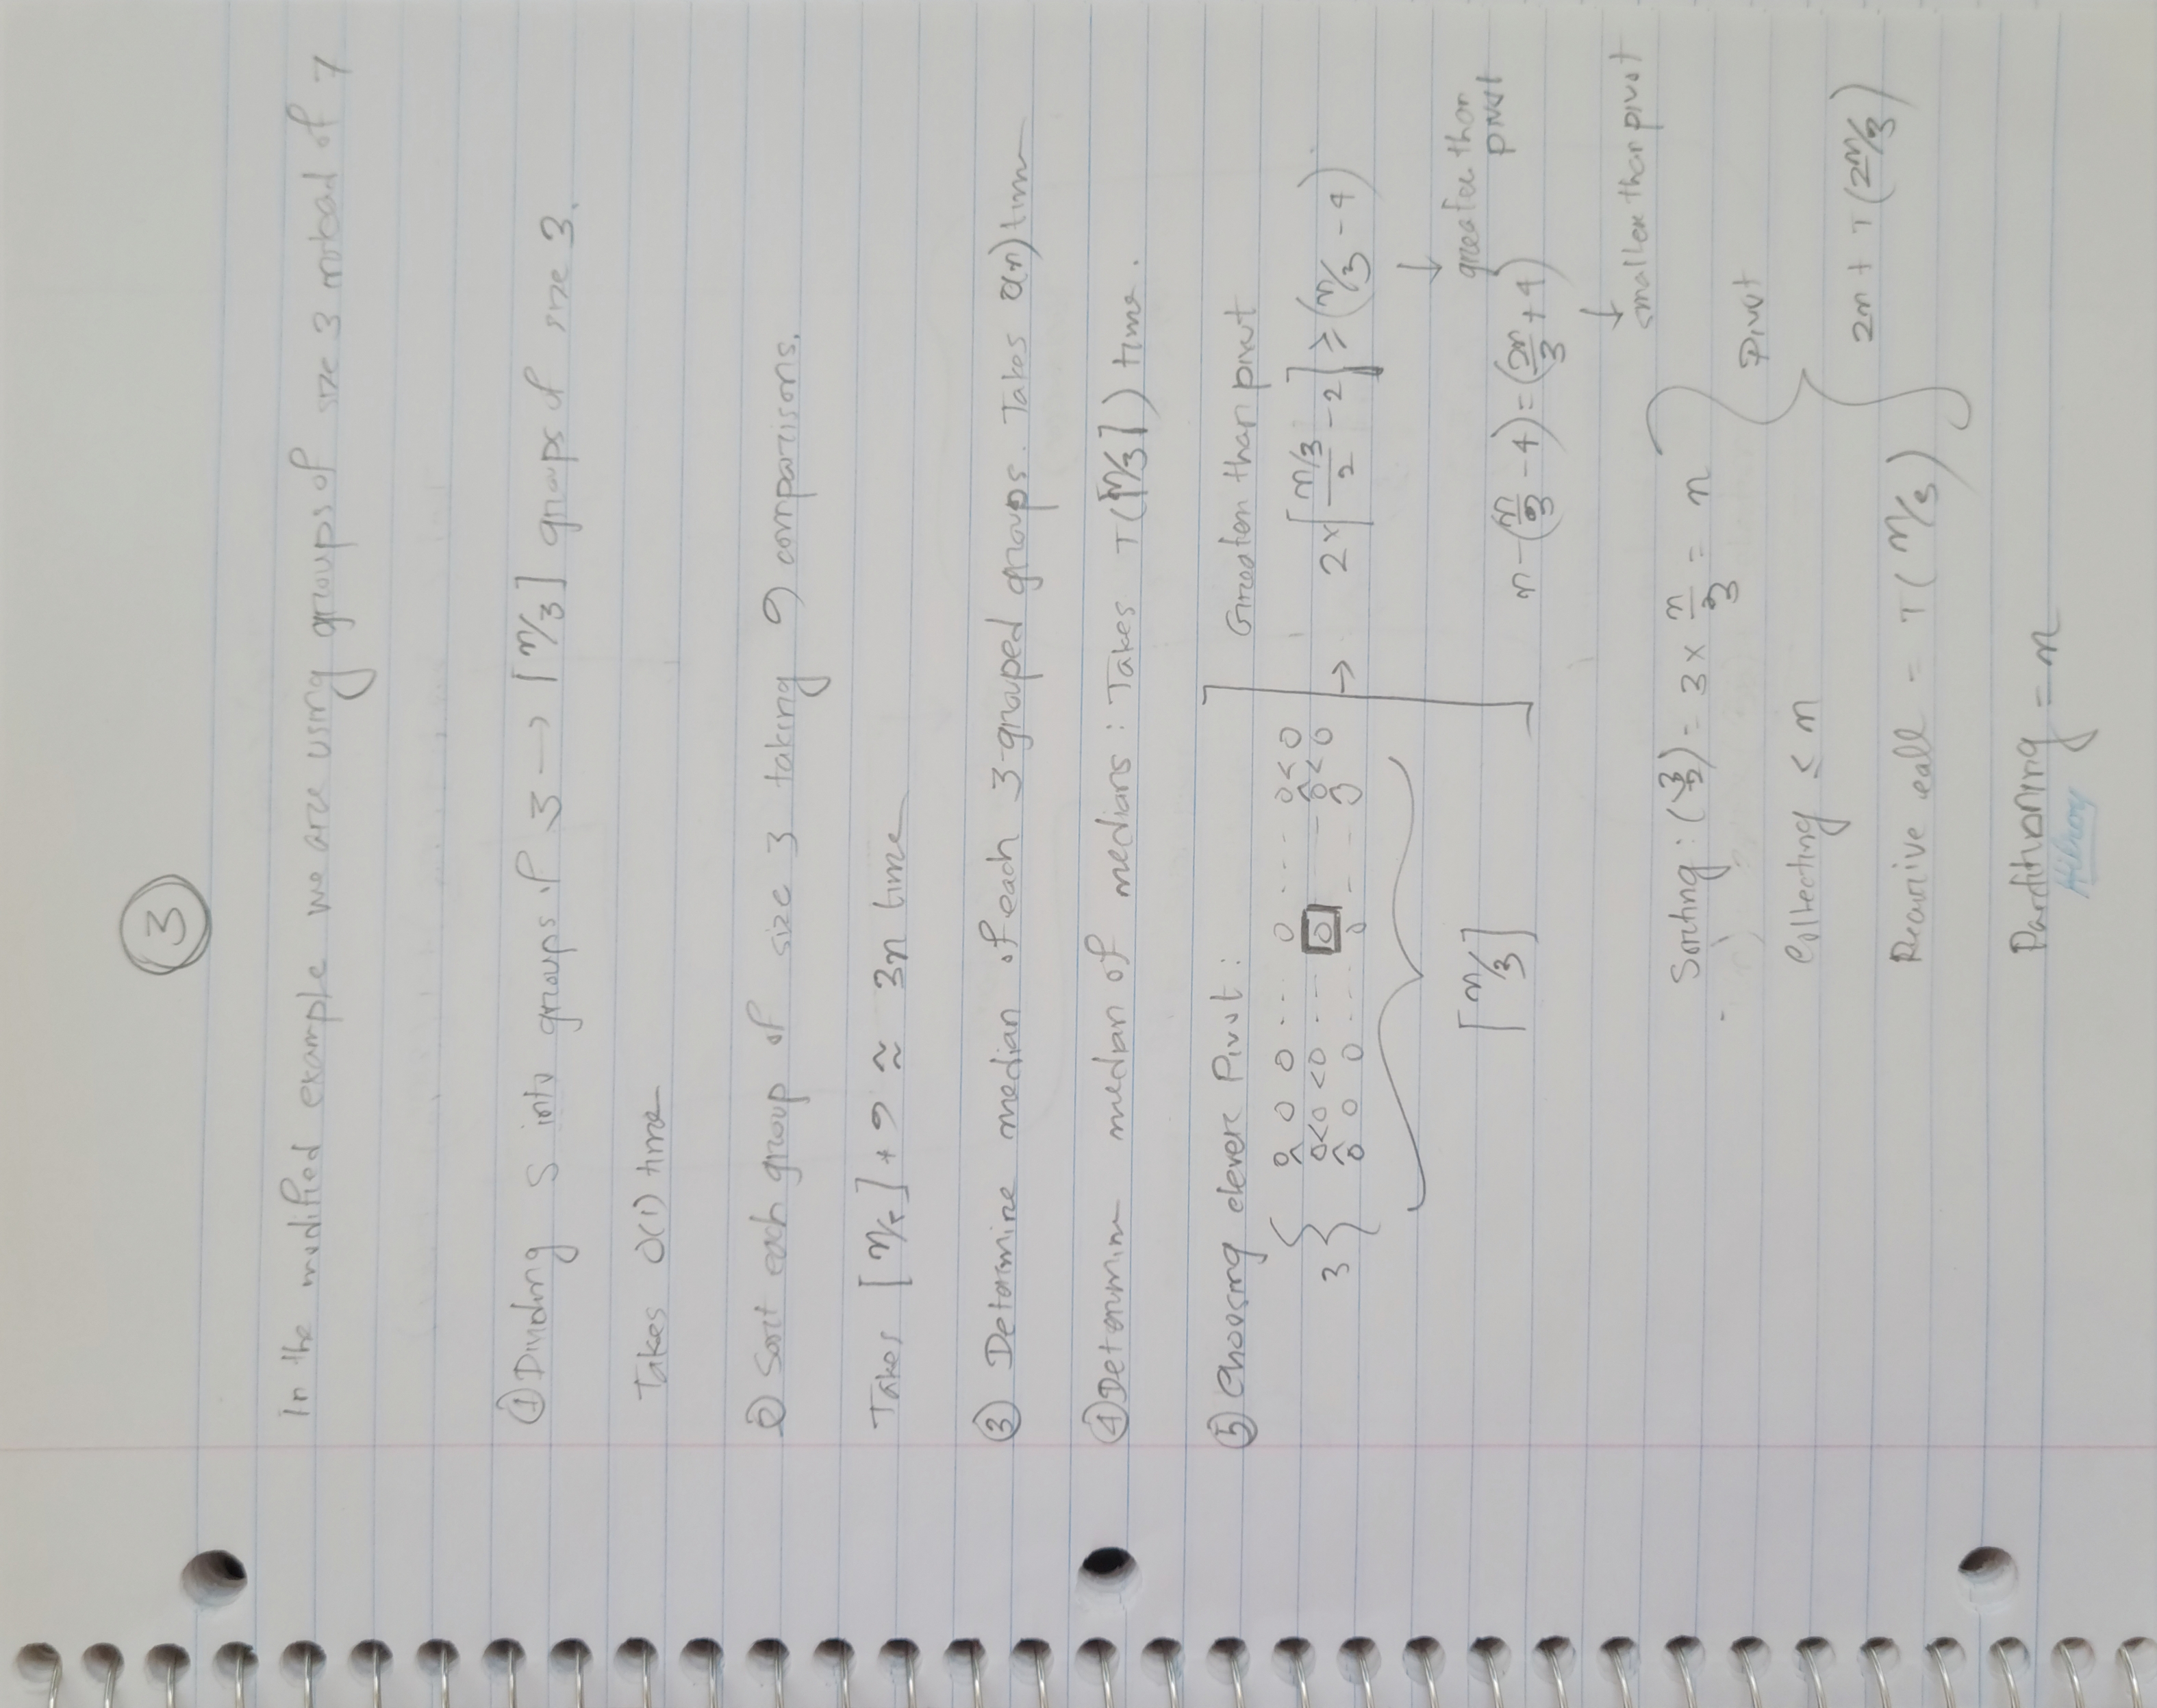 3
In the modified example we are using groups of size 3 instead of 7
① Dividing S into groups of 3 → ⌈n/3⌉ groups of size 3.
Takes O(1) time
② Sort each group of size 3 taking 9 comparisons.
Takes ⌈n/ ⌉ * 9 ≈ 3n time
③ Determine median of each 3-grouped groups. Takes O(n) time
④ Determine median of medians : Takes T(⌈n/3⌉) time.
⑤ Choosing clever Pivot :
3
⌈n/3⌉
Greater than pivot
→ 2×⌈(n/3)/2 - 2⌉ ≥ (n/3 - 4)
↓
greater than pivot
n - (n/3 - 4) = (2n/3 + 4)
↓
smaller than pivot
Sorting : (3 2) = 3 × n/3 = n
Collecting ≤ n
Recursive call = T(n/3)
Pivot
2n + T(2n/3)
Partitioning = n
Hilroy